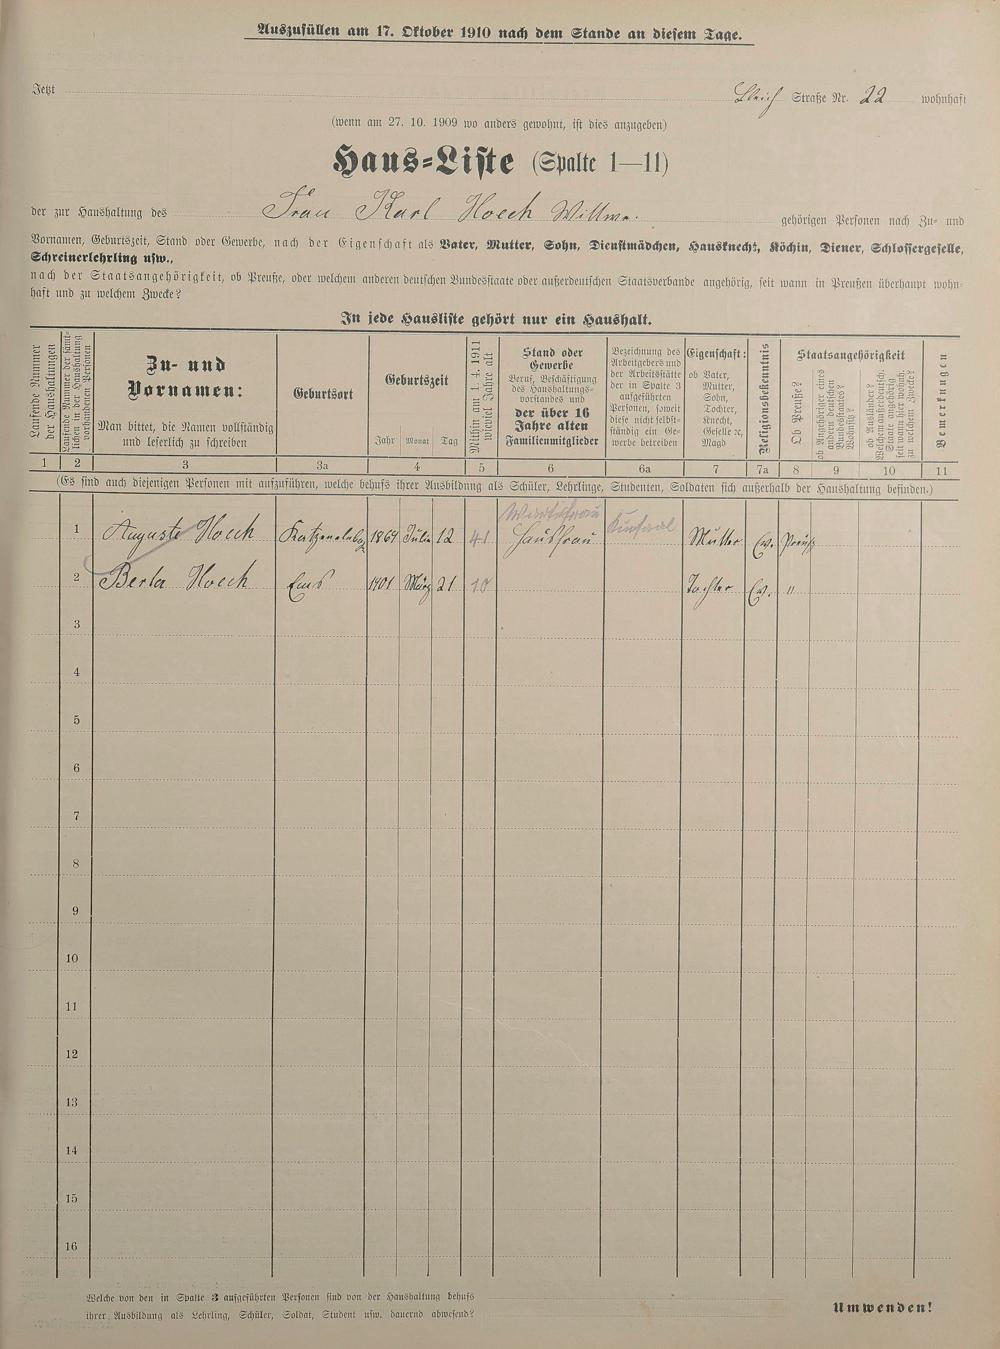 Auszufüllen am 17. Oktober 1910 nach dem Stande an diesem Tage.
Jetzt Bleich Straße Nr. 22 wohnhaft
(wenn am 27. 10. 1909 wo anders gewohnt, ist dies anzugeben)
Haus=Liste (Spalte 1—11)
der zur Haushaltung des Frau Karl Hoech Wittwe. gehörigen Personen nach Zu- und
Vornamen, Geburtszeit, Stand oder Gewerbe, nach der Eigenschaft als Vater, Mutter, Sohn, Dienstmädchen, Hausknecht, Köchin, Diener, Schlossergeselle,
Schreinerlehrling usw.,
nach der Staatsangehörigkeit, ob Preuße, oder welchem anderen deutschen Bundesstaate oder außerdeutschen Staatsverbande angehörig, seit wann in Preußen überhaupt wohn-
haft und zu welchem Zwecke?
In jede Hausliste gehört nur ein Haushalt.
Laufende Nummer der Haushaltungen
Laufende Nummer der sämt-
lichen in der Haushaltung
vorhandenen Personen
Zu- und
Vornamen:
Man bittet, die Namen vollständig
und leserlich zu schreiben
Geburtsort
Geburtszeit
Jahr Monat Tag
Mithin am 1. 4. 1911
wieviel Jahre alt
Stand oder
Gewerbe
Beruf, Beschäftigung
des Haushaltungs-
vorstandes und
der über 16
Jahre alten
Familienmitglieder
Bezeichnung des
Arbeitgebers und
der Arbeitsstätte
der in Spalte 3
aufgeführten
Personen, soweit
diese nicht selbst-
ständig ein Ge-
werbe betreiben
Eigenschaft:
ob Vater,
Mutter,
Sohn,
Tochter,
Knecht,
Geselle ꝛc,
Magd
Religionsbekenntnis
Staatsangehörigkeit
Ob Preuße?
ob Angehöriger eines
andern deutschen
Bundesstaates?
Wohnsitz?
ob Ausländer?
Welchem außerdeutsch.
Staate angehörig
seit wann hier wohnh.
zu welchem Zwecke?
Bemerkungen
1 2 3 3a 4 5 6 6a 7 7a 8 9 10 11
(Es sind auch diejenigen Personen mit aufzuführen, welche behufs ihrer Ausbildung als Schüler, Lehrlinge, Studenten, Soldaten sich außerhalb der Haushaltung befinden.)
Wartefrau
1 Auguste Hoech 1864 Juli 12 41 Hausfrau Kursaal Mutter Ev. Preuß
2 Berta Hoech Ems 1901 März 21 10 Tochter Ev. "
3
4
5
6
7
8
9
10
11
12
13
14
15
16
Welche von den in Spalte 3 aufgeführten Personen sind von der Haushaltung behufs
ihrer Ausbildung als Lehrling, Schüler, Soldat, Student usw. dauernd abwesend?
Umwenden!